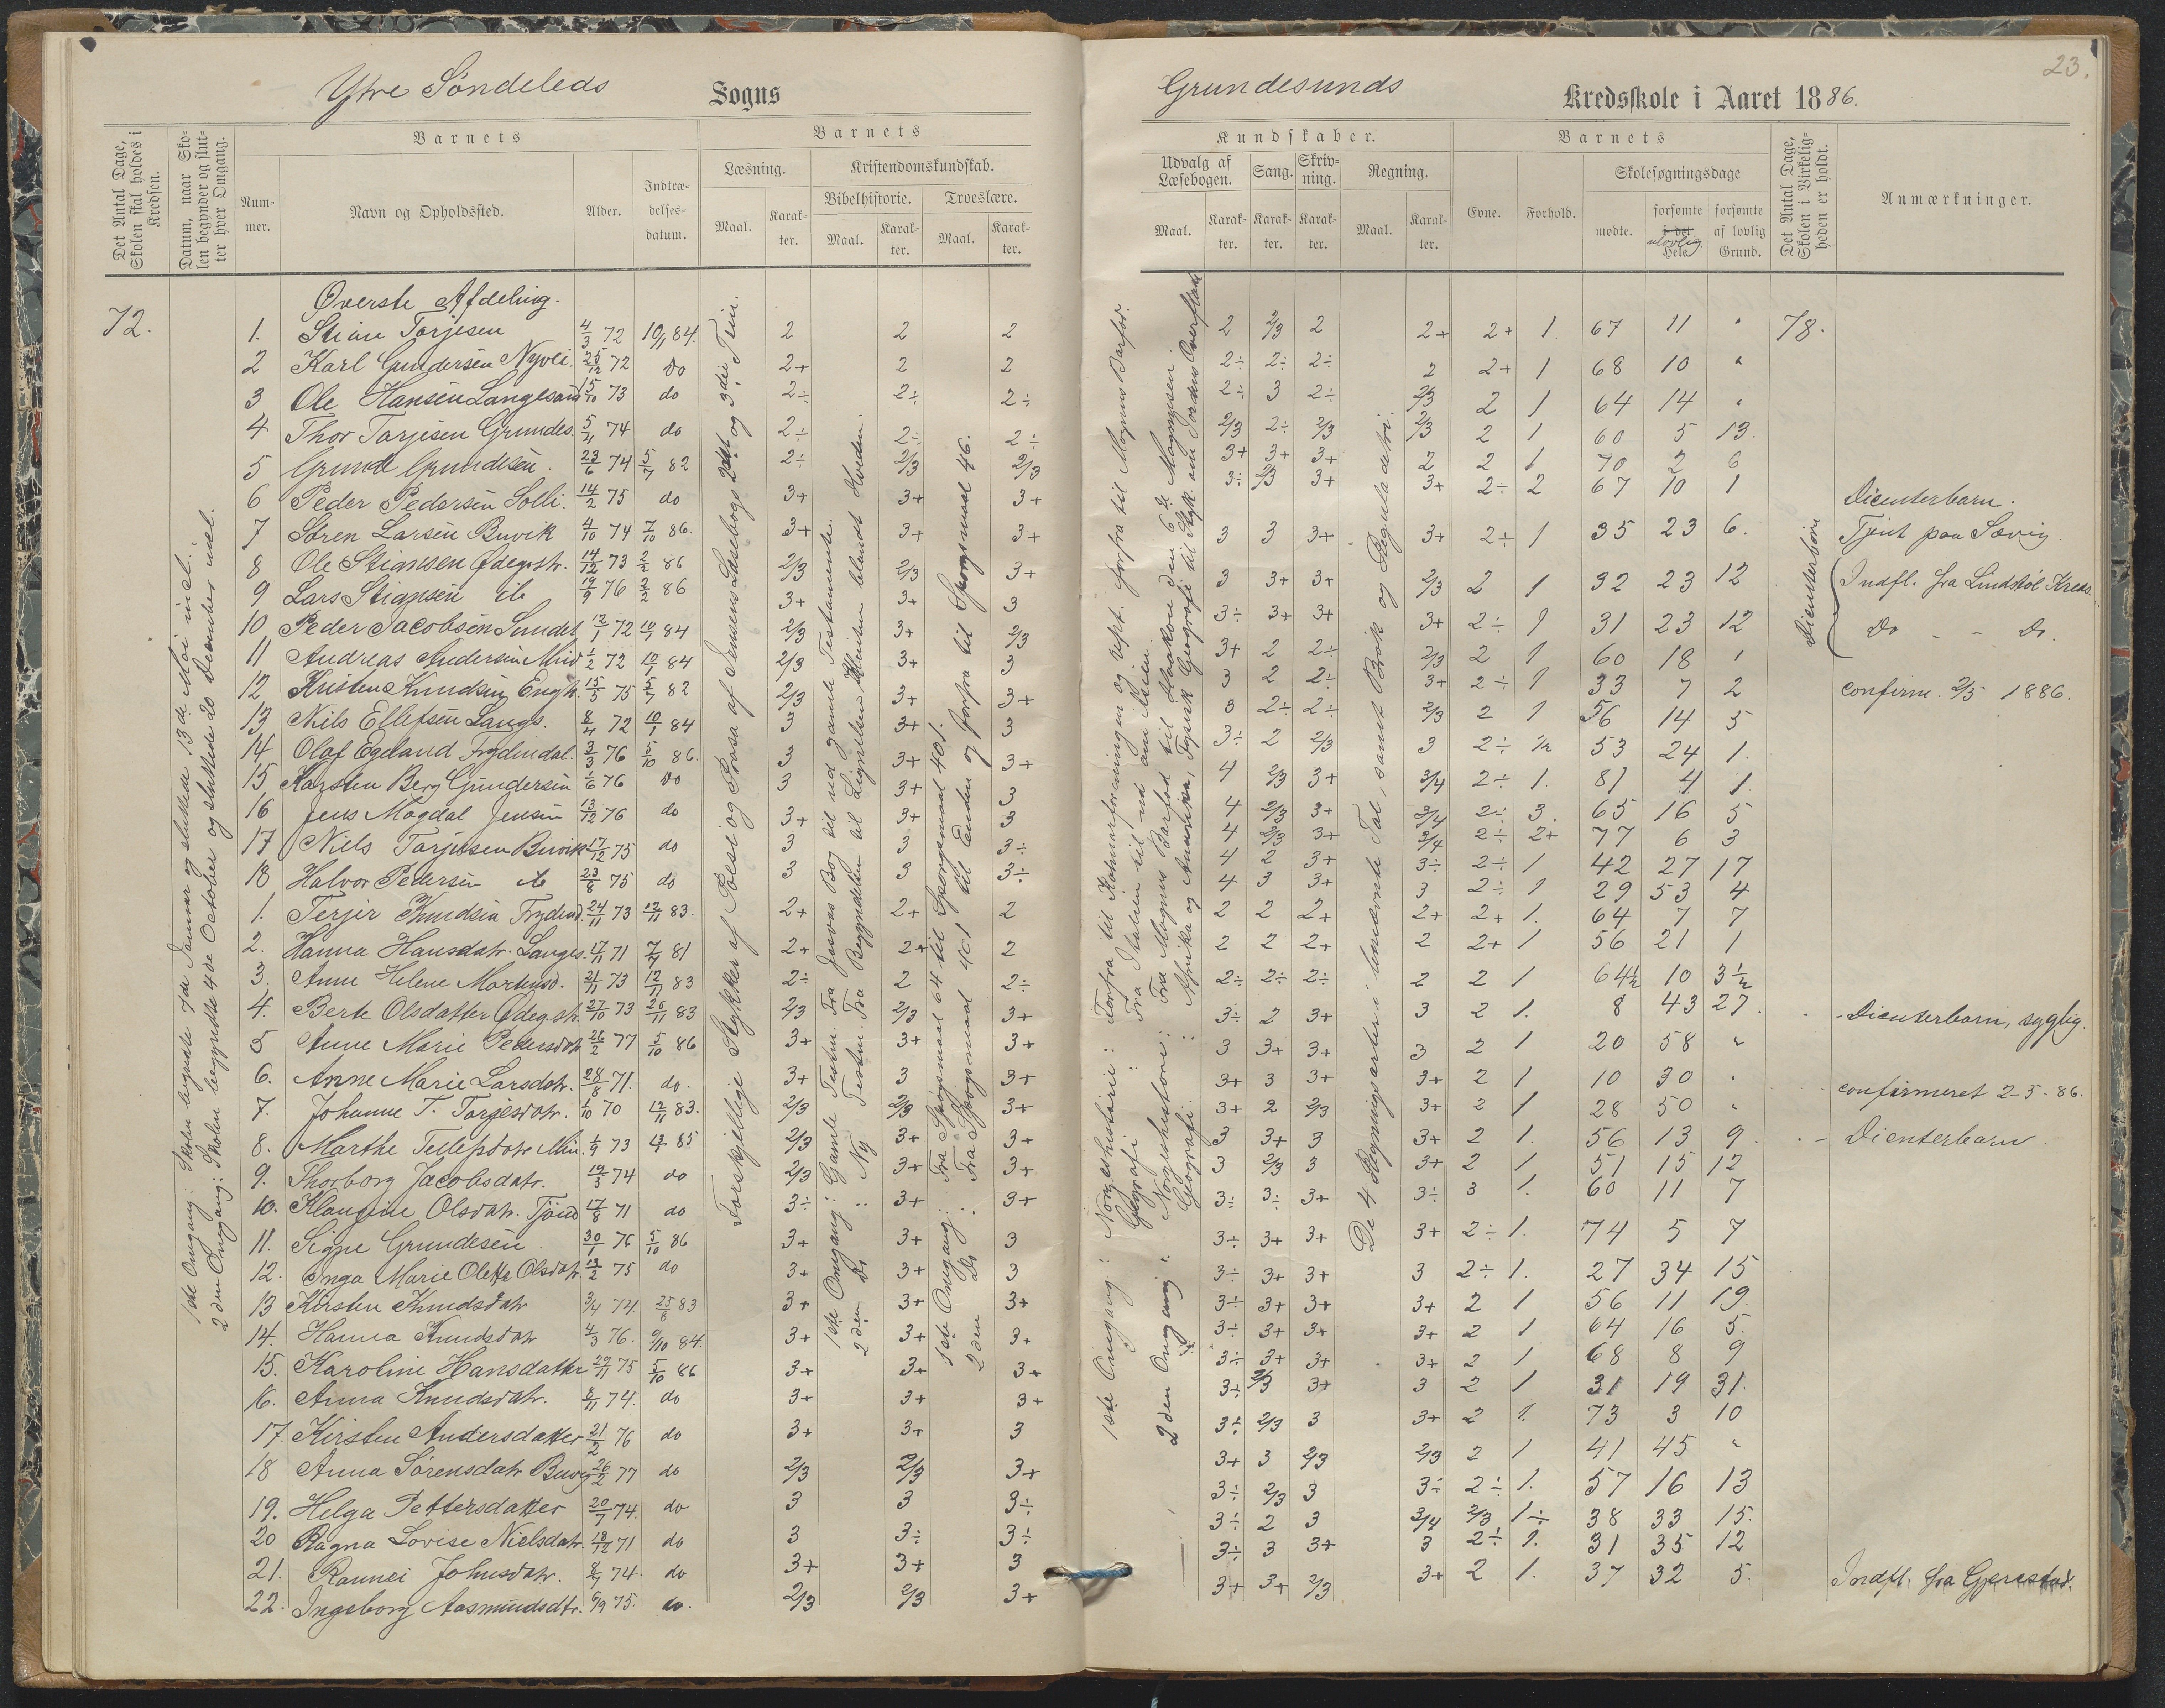 Ytre Söndeleds Sogns
Det Antal Dage, Skolen skal holdes i Kredsen.
Datum, naar Skolen begynder og slutter hver Omgang.
Barnets
Nummer.
Navn og Opholdssted.
Alder.
Indtrædelsesdatum.
Barnets
Læsning.
Maal.
Karakter.
Kristendomskundskab.
Bibelhistorie.
Maal.
Karakter.
Troeslære.
Maal.
Karakter.
72.
Överste Afdeling.
1. Stian Tarjesen 4/3 72 10/1 84. 2 2 2
2 Karl Gundersen Nyvei. 25/12 72 do 2+ 2 2
3 Ole Hansen Langesand 15/10 73 do 2÷ 2÷ 2÷
4 Thor Tarjesen Grundes. 5/11 74 do 2÷ 2÷ 2÷
5 Grunde Grundesen. 23/6 74 5/7 82 2÷ 2/3 2/3
6 Peder Pedersen Solli. 14/2 75 do 3+ 3+ 3+
7 Sören Larsen Buvik 4/10 74 7/10 86. 3+ 3+ 3+
8 Ole Stiansen Ödegrst. 14/12 73 2/2 86 2/3 2/3 3+
9 Lars Stiansen ib 19/9 76 2/2 86 3+ 3+ 3
10 Peder Jacobsen Sundet 12/1 72 10/1 84 2/3 3+ 2/3
11 Andreas Andersen Mind 1/2 72 10/1 84 2/3 3+ 3
12 Kristen Knudsen Engh. 15/5 75 5/7 82 2/3 3+ 3+
13 Nils Ellefsen Langs. 8/4 72 10/1 84 3 3+ 3
14 Olaf Egeland Frydendal. 3/3 76 5/10 86. 3 3+ 3+
15 Karsten Berg Gundersen 1/6 76 do 3 3+ 3
16 Jens Magdal Jensen 13/12 76 do 3+ 3+ 3
17 Niels Tarjesen Buvik 17/12 75 do 3 3 3÷
18 Halvor Pedersen ib 23/8 75 do 3 3 3÷
1. Terjer Knudsen Frydend. 24/11 73 12/11 83. 2+ 2+ 2
2. Hanna Hansdatr. Langes. 17/11 71 7/7 81 2+ 2+ 2
3. Anne Helene Mortensd. 21/11 73 12/11 83 2÷ 2 2÷
4. Berte Olsdatter Ödeg.st. 27/10 73 26/11 83 2/3 2/3 3+
5 Anne Marie Pedersdatr 26/2 77 5/10 86 3+ 3+ 3+
6. Anne Marie Larsdatr. 28/8 71. do. 3+ 3 3+
7. Johanne T. Tarjesdatr. 1/10 70 12/11 83. 2/3 2/3 3+
8. Marthe Tellefsdatr Min. 1/9 73 85 2/3 3+ 3+
9. Thorborg Jacobsdatr. 19/3 74 do 2/3 3+ 3+
10. Klangine Olsdatr. 17/8 71 do 3÷ 3+ 3+
11. Signe Grundesen 30/1 76 5/10 86 3+ 3+ 3
12. Inga Marie Olette Olsdatr 13/2 75 do 3+ 3+ 3
13 Kirsten Knudsdatr 3/4 74. 25/8 83 3+ 3+ 3+
14. Hanna Knudsdatr 4/3 76. 9/10 84. 3+ 3+ 3+
15. Karoline Hansdatter 29/11 75 5/10 86 3+ 3+ 3+
16. Anna Knudsdatr. 8/11 74. do 3+ 3+ 3+
17. Kirsten Andersdatter 21/2 76 do 3+ 3+ 3
18 Anna Sörensdatr Buvig 26/2 77 do 2/3 2/3 3+
19. Helga Pettersdatter 20/7 74. do 3 3 3÷
20 Ragna Lovise Nielsdatr. 18/12 71 do 3 3÷ 3÷
21. Rannei Johnsdatr. 8/7 74. do 3+ 3+ 3
22. Ingeborg Aasmundsdtr. 6/9 75. do. 2/3 2/3 3+
1ste Omgang: Skolen begyndte 7de Januar og sluttede 13de Mai incl.
2den Omgang: Skolen begyndte 4de October og sluttede 20 December incl.
Forskjellige Stykker af Poesi og Prosa af Jensens Læsebogs 2det og 3die Trin.
1ste Omgang: Gamle Testm. Fra Josvas Bog til ud gamle Testamente.
2den Do : Ny Testm. Fra Begyndelsen til Lignelsen Klinten blandt Hveden.
1ste Omgang: Fra Spörgsmaal 64 til Spörgsmaal 401.
2den Do : Fra Spörgsmaal 401 til Enden og forfra til Spörgsmaal 46.
Grundesunds Kredsskole i Aaret 1886.
23.
Kundskaber.
Udvalg af Læsebogen.
Maal.
Karakter.
Sang.
Karakter.
Skrivning.
Karakter.
Regning.
Maal.
Karakter.
Barnets
Evne.
Forhold.
Skolesøgningsdage
mødte.
forsømte i det Hele
ulovlig
forsømte af lovlig Grund.
Det Antal Dage, Skolen i Virkeligheden er holdt.
Anmærkninger.
2 2/3 2 2+ 2+ 1. 67 11 " 78.
2÷ 2÷ 2÷ 2 2+ 1 68 10 "
2÷ 3 2÷ 2/3 2 1 64 14 "
2/3 2÷ 2/3 2/3 2 1 60 5 13.
3+ 3+ 3+ 2 2 1 70 2 6
3÷ 2/3 3+ 3+ 2÷ 2 67 10 1 Dienterbarn.
3 3 3+ 3+ 2÷ 1 35 23 6. Tjent paa Sævig.
3 3+ 3+ 2/3 2 1 32 23 12 Indfl. fra Lindstöl Kreds.
3÷ 3+ 3+ 3+ 2÷ 1 31 23 12 Do - - Do.
3+ 2 2÷ 2/3 2 1 60 18 1
3 2 2÷ 3+ 2÷ 1 33 7 2 confirm. 2/5 1886.
3 2÷ 2÷ 2/3 2 1 56 14 5
3÷ 2 2/3 3 2÷ 1/2 53 24 1.
4 2/3 3+ 3/4 2÷ 1. 81 4 1.
4 2/3 3+ 3/4 2÷ 3. 65 16 5
4 2/3 3+ 3/4 2÷ 2+ 77 6 3
4 2 3+ 3÷ 2÷ 1 42 27 17
4 3 3+ 3 2÷ 1 29 53 4
2 2 2+ 2+ 2+ 1. 64 7 7
2 2 2+ 2 2+ 1 56 21 1
2÷ 2÷ 2÷ 2 2 1 64½ 10 3½
3÷ 2 3+ 3 2 1. 8 43 27. - Dienterbarn, syglig.
3 3+ 3+ 3 2 1 20 58 "
3+ 3 3+ 3+ 2 1 10 30 " confirmeret 2-5-86.
3+ 2 2/3 3+ 2 1 28 50 "
3 3+ 3 3+ 2 1. 56 13 9. - Dienterbarn.
3 2/3 3 3+ 2 1. 51 15 12
3÷ 3÷ 3+ 3÷ 3 1. 60 11 7
3÷ 3+ 3+ 3+ 2÷ 1. 74 5 7
3÷ 3+ 3+ 3 2÷ 1. 27 34 15
3÷ 3+ 3+ 3+ 2 1 56 11 19.
3÷ 3+ 3+ 3+ 2 1 64 16 5.
3÷ 3+ 3+ 3+ 2 1 68 8 9
3÷ 2/3 3+ 3 2 1 31 19 31.
3÷ 2/3 3 3+ 2 1. 73 3 10
3+ 3 2/3 2/3 2 1 41 45 "
3÷ 2/3 3 3÷ 2÷ 1. 57 16 13
3÷ 2 3 3/4 2/3 1÷ 38 33 15.
3÷ 3 3+ 3 2÷ 1. 31 35 12
3+ 3+ 2/3 3+ 2 1. 37 32 5. Indfl. fra Gjerestad.
Dienterbörn
1ste Omgang: Norgeshistorie: Forfra til Kalmarforeningen og rept. forfra til Magnus Barfod.
Geografi: Fra Italien til ud om Asien.
2den Omgang: Norgeshistorie: Fra Magnus Barfod til Haakon den 6te Magnusen.
Geografi: Afrika og Amerika, Fysisk Geografi til Styk om Jordens Overflade
De 4 Regningsarter i benævnte Tal, samt Brök og Reguladetri.